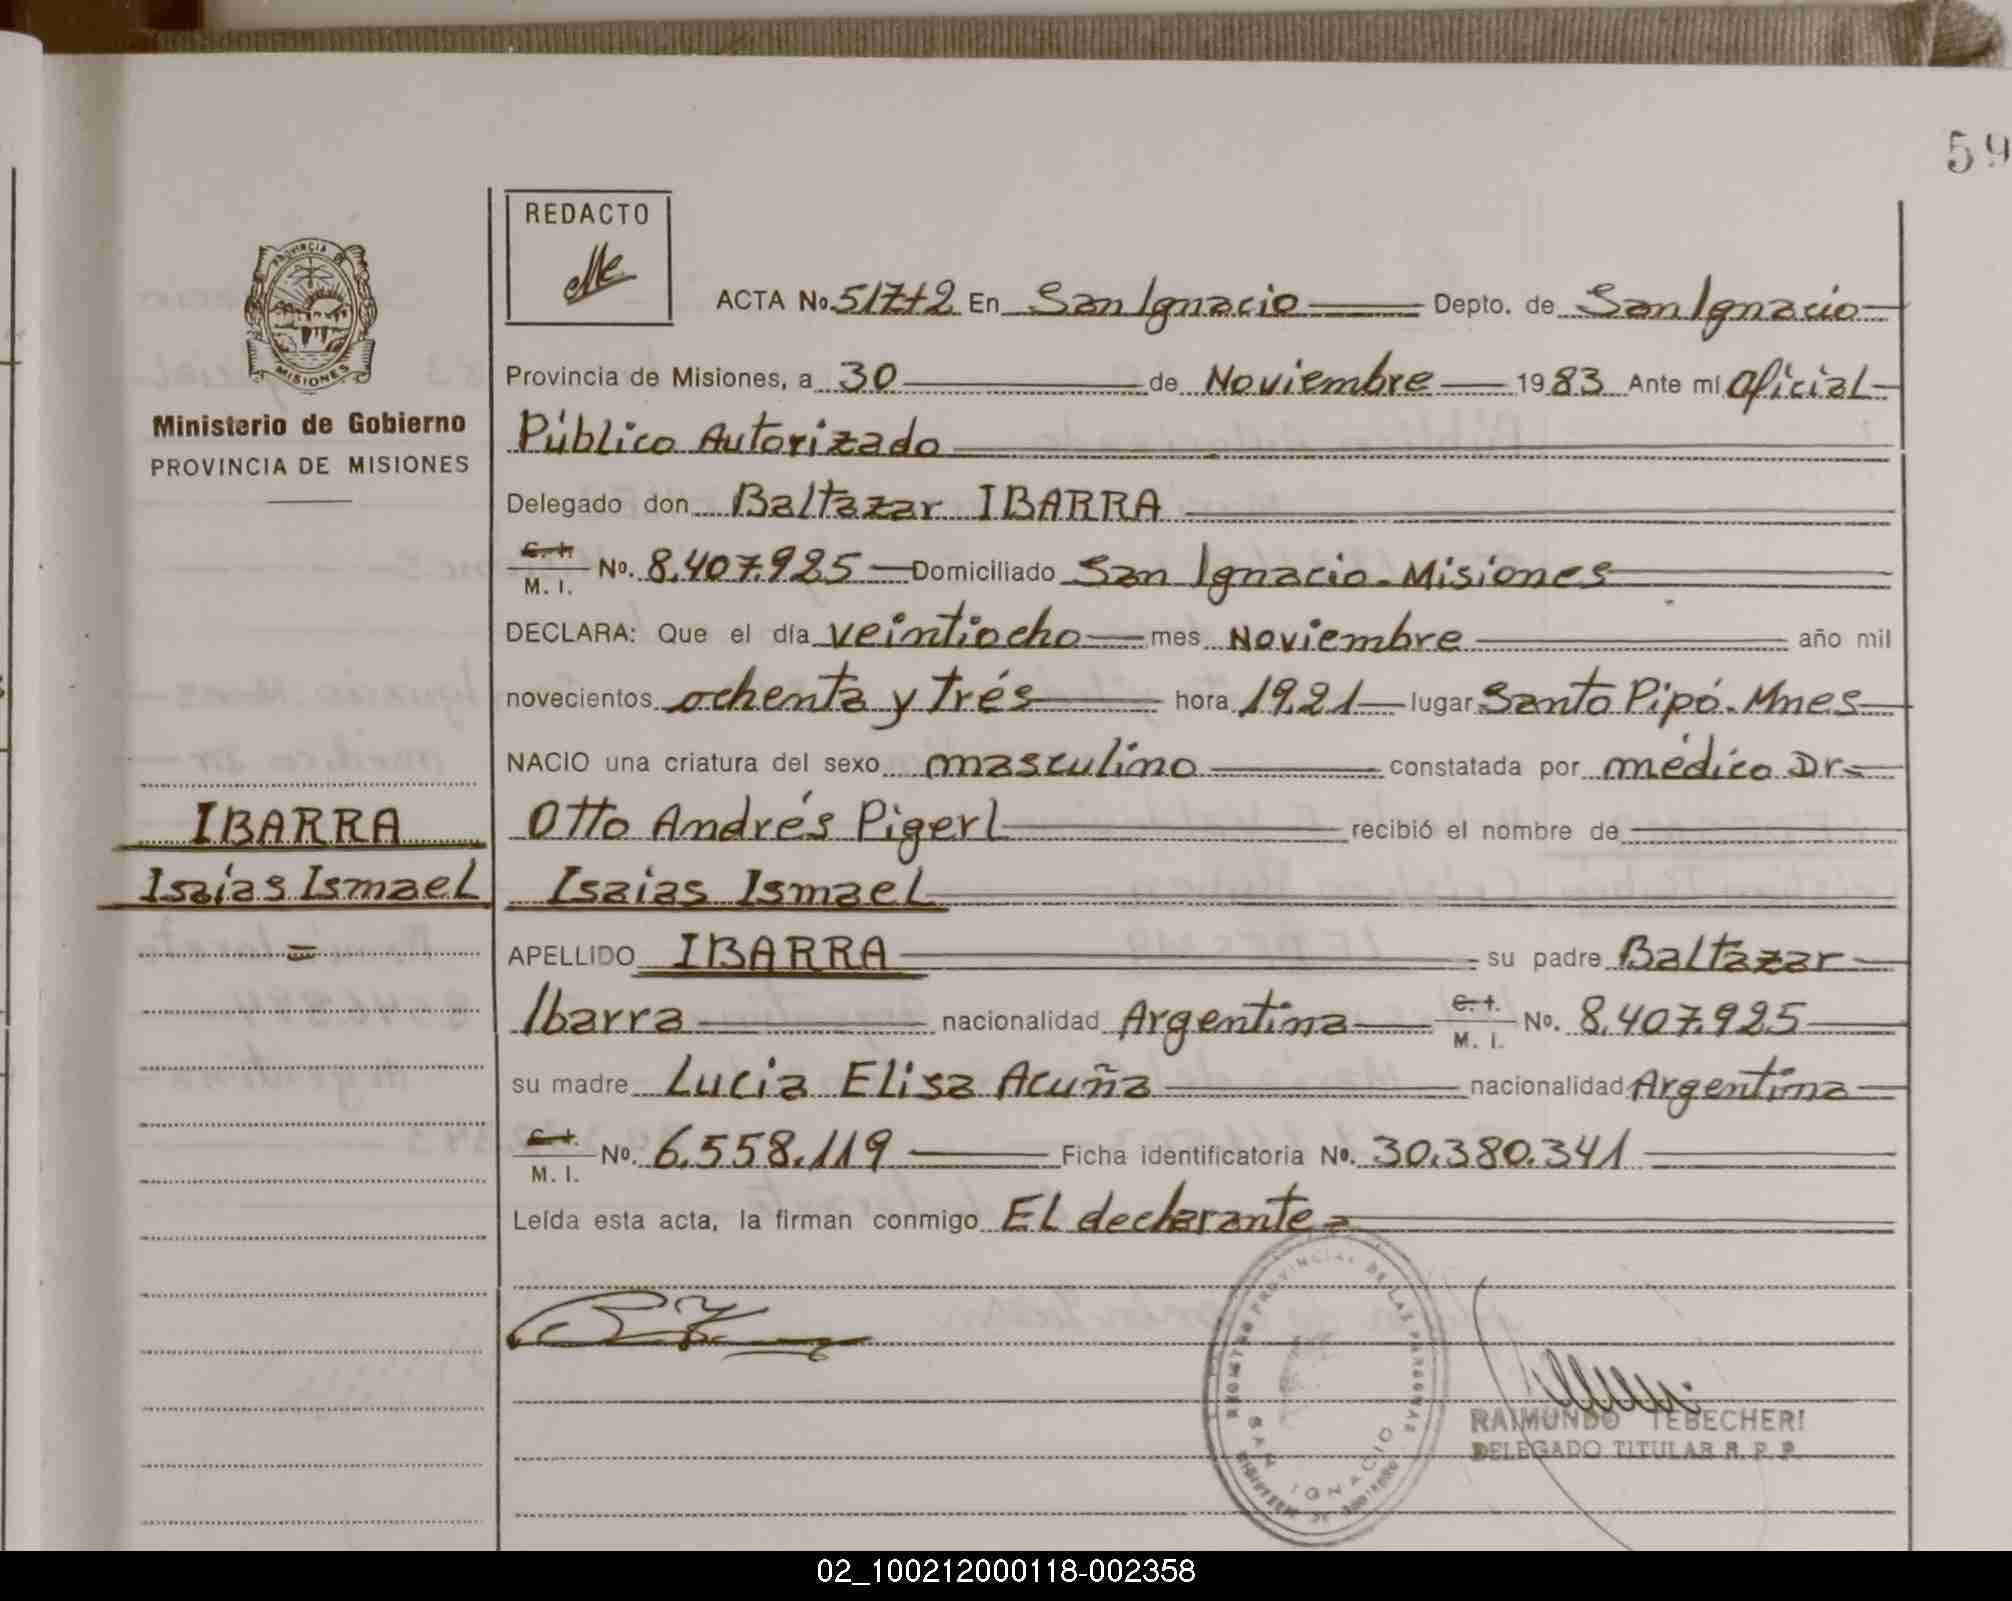 59
REDACTO
PROVINCIA DE
MISIONES
ACTA No. 517+2 En San Ignacio Depto. de San Ignacio
Provincia de Misiones, a 30 de Noviembre 1983 Ante mí Oficial
Ministerio de Gobierno
Público Autorizado
PROVINCIA DE MISIONES
Delegado don Baltazar IBARRA
M. I. No. 8.407.925 Domiciliado San Ignacio-Misiones
DECLARA: Que el día veintiocho mes Noviembre año mil
novecientos ochenta y trés hora 19,21 lugar Santo Pipó-Mnes
NACIO una criatura del sexo masculino constatada por médico Dr
IBARRA
Otto Andrés Pigerl recibió el nombre de
Isaías Ismael =
Isaias Ismael
APELLIDO IBARRA su padre Baltazar
Ibarra nacionalidad Argentina C. I. M. I. No. 8.407.925
su madre Lucia Elisa Acuña nacionalidad Argentina
C. I. M. I. No. 6.558.119 Ficha identificatoria No. 30.380.341
Leída esta acta, la firman conmigo El declarante=
REGISTRO PROVINCIAL DE LAS PERSONAS
SAN IGNACIO
MINISTERIO DE GOBIERNO
RAIMUNDO TEBECHERI
DELEGADO TITULAR R. P. P.
02_100212000118-002358